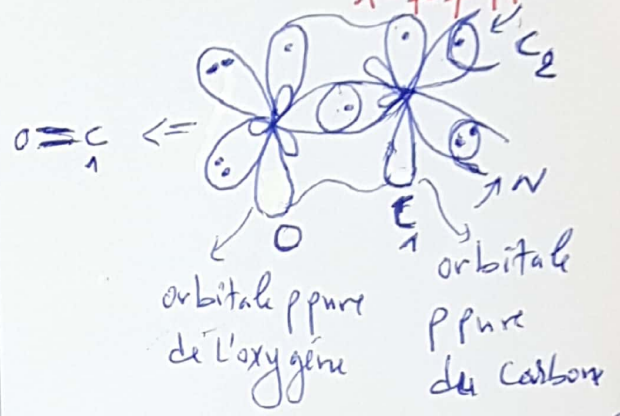 C2
O=C1 <=
N
O
C1
orbitale p pure
de l'oxygéne
orbitale
p pure
du Carbone